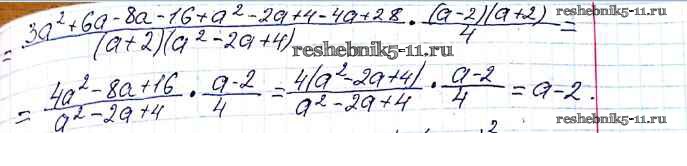 = (3a² + 6a - 8a - 16 + a² - 2a + 4 - 4a + 28) / ((a+2)(a² - 2a + 4)) · ((a-2)(a+2)) / 4 =
reshebnik5-11.ru
= (4a² - 8a + 16) / (a² - 2a + 4) · (a-2) / 4 = (4(a² - 2a + 4)) / (a² - 2a + 4) · (a-2) / 4 = a - 2.
reshebnik5-11.ru
reshebnik5-11.ru
2